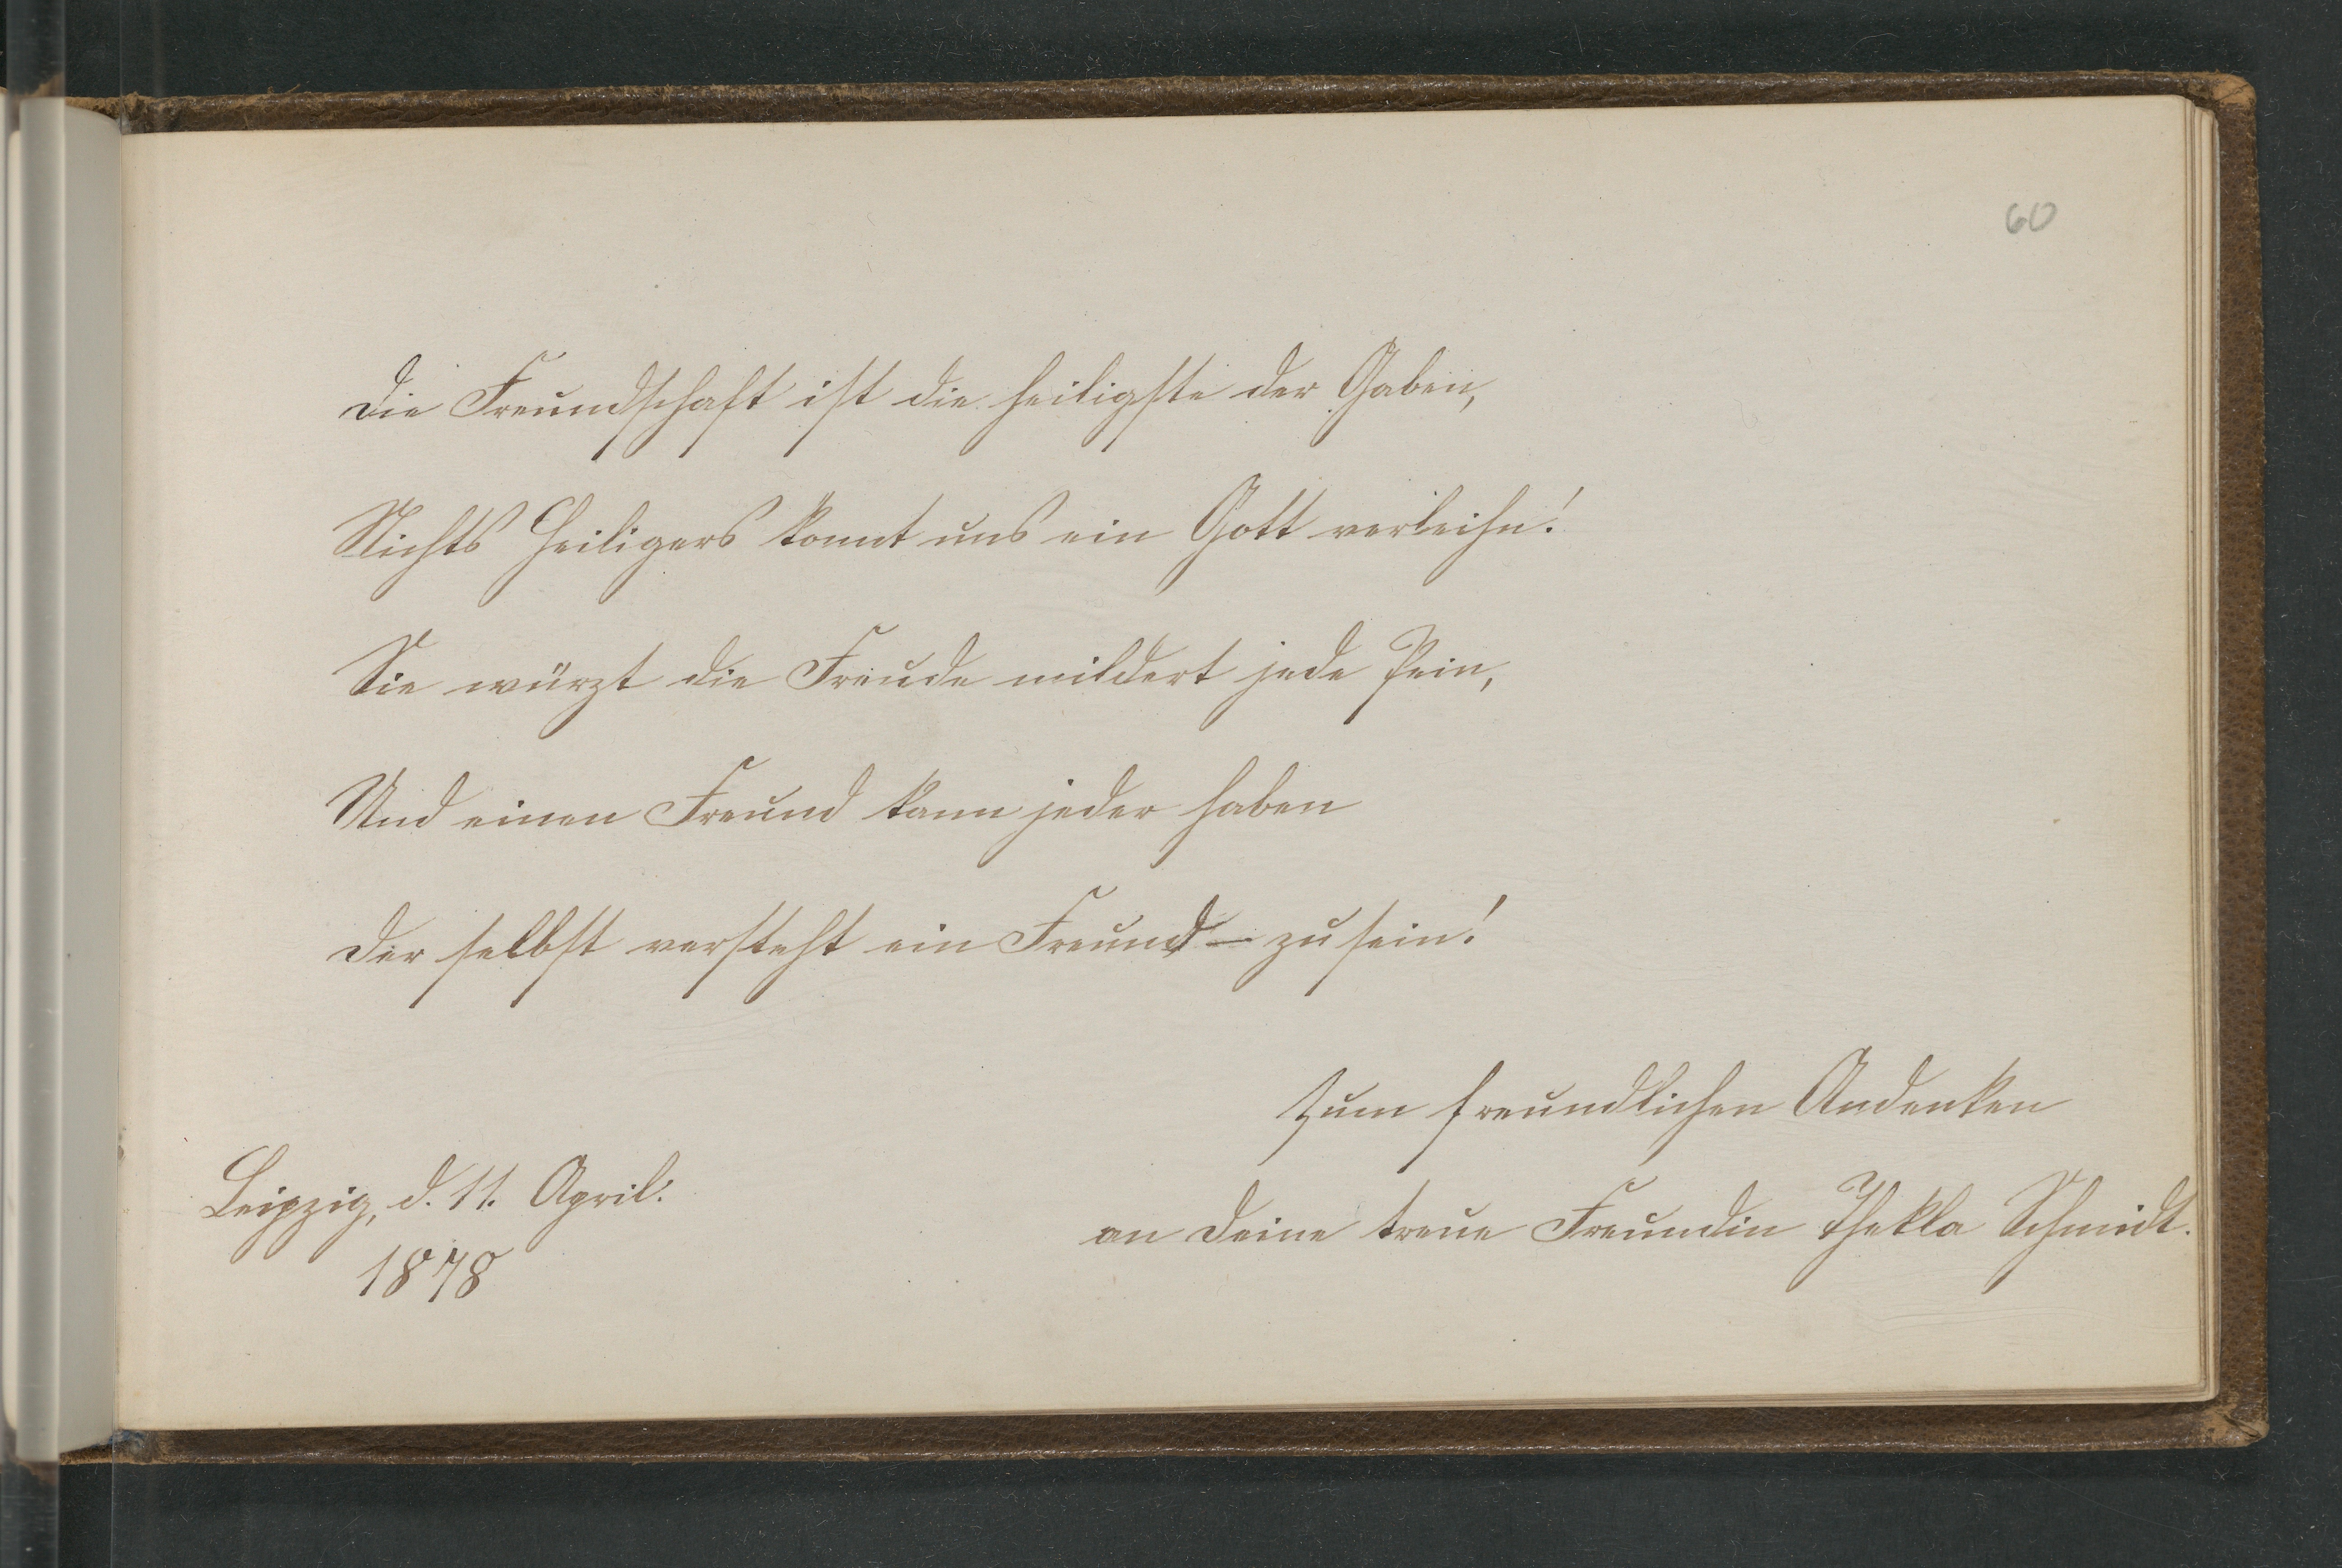 60
Die Freundschaft ist die heiligste der Gaben,
Nichts Heiligers konnt uns ein Gott verleihn!
Sie würzt die Freude mildert jede Pein,
Und einen Freund kann jeder haben
Der selbst versteht ein Freund – zu sein!
Zum freundlichen Andenken
an Deine treue Freundin Thekla Schmidt.
Leipzig, d. 11. April.
1878